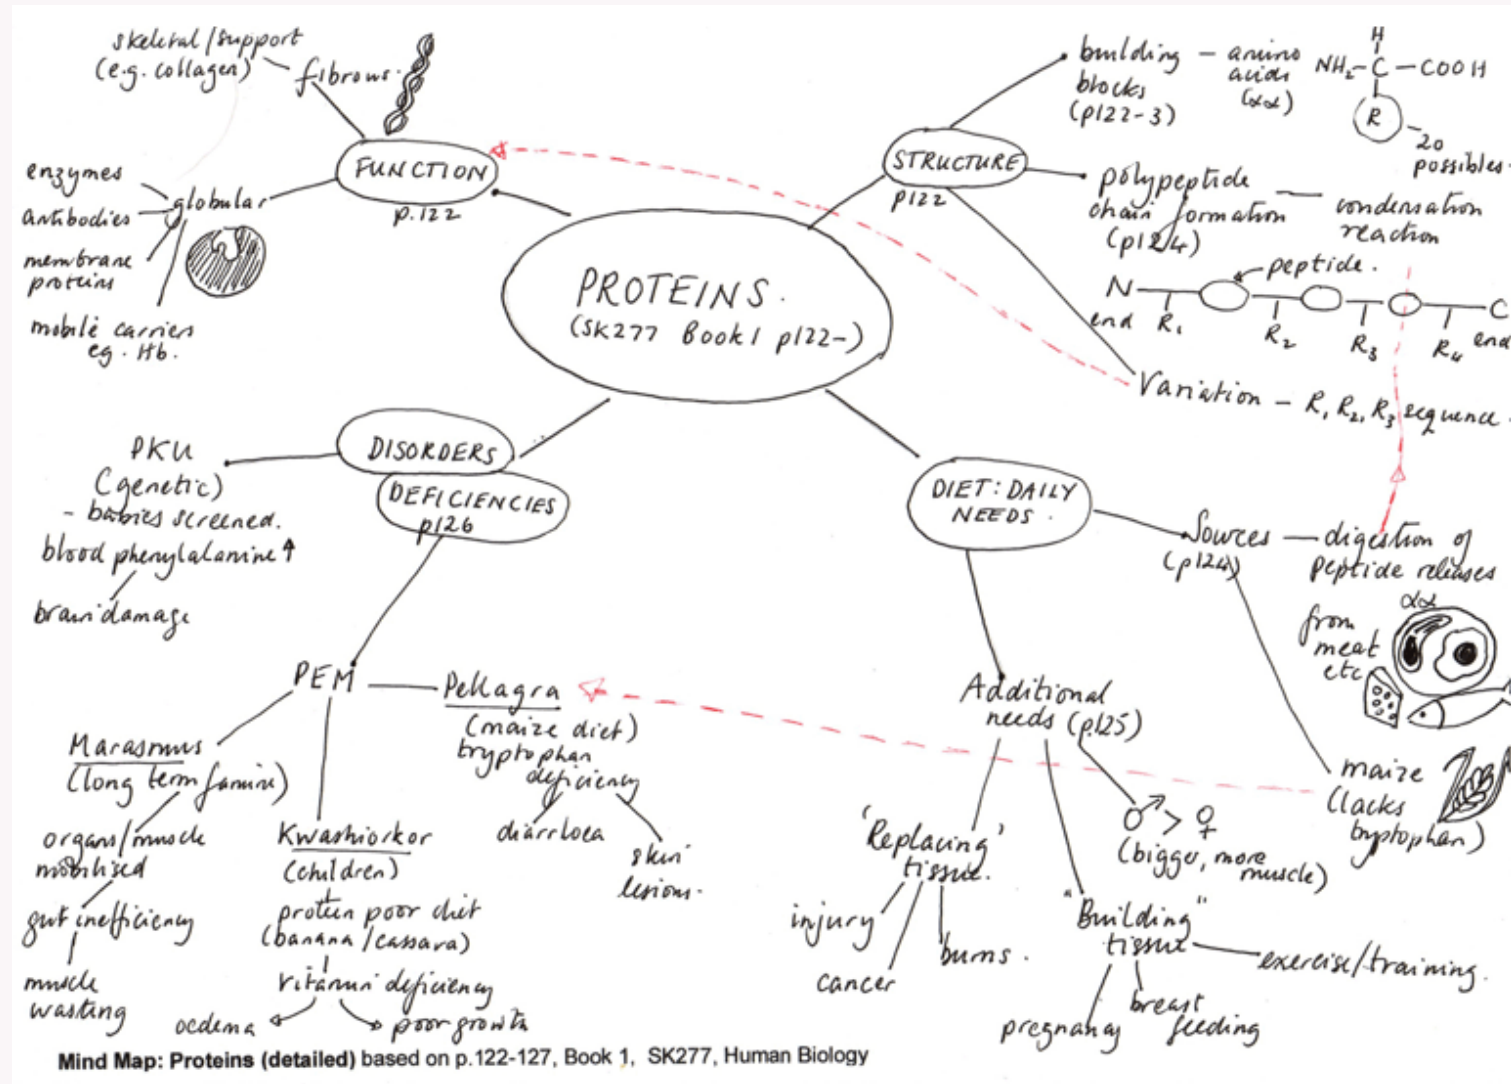 skeletal/support
(e.g. collagen)
fibrous.
FUNCTION
p.122
enzymes
antibodies
globular
membrane
proteins
mobile carriers
eg. Hb.
PROTEINS.
(SK277 Book 1 p122-)
STRUCTURE
p122
building
blocks
(p122-3)
amino
acids
(αα)
H
NH2-C-COOH
R
20
possibles.
polypeptide
chain formation
(p124)
condensation
reaction
peptide.
N
end
R1
R2
R3
R4
C
end
Variation - R1 R2, R3 sequence.
DISORDERS
DEFICIENCIES
p126
PKU
(genetic)
- babies screened.
blood phenylalanine ↑
brain damage
PEM
Marasmus
(long term famine)
organs/muscle
mobilised
gut inefficiency
muscle
wasting
Kwashiorkor
(children)
protein poor diet
(banana/cassava)
vitamin deficiency
oedema
poor growth
Pellagra
(maize diet)
tryptophan
deficiency
diarrhoea
skin
lesions.
DIET: DAILY
NEEDS.
Sources
(p124)
digestion of
peptide releases
αα
from
meat
etc
maize
(lacks
tryptophan)
Additional
needs (p.125)
♂ > ♀
(bigger, more
muscle)
'Replacing'
tissue.
injury
cancer
burns.
"Building"
tissue
pregnancy
breast
feeding
exercise/training.
Mind Map: Proteins (detailed) based on p.122-127, Book 1, SK277, Human Biology